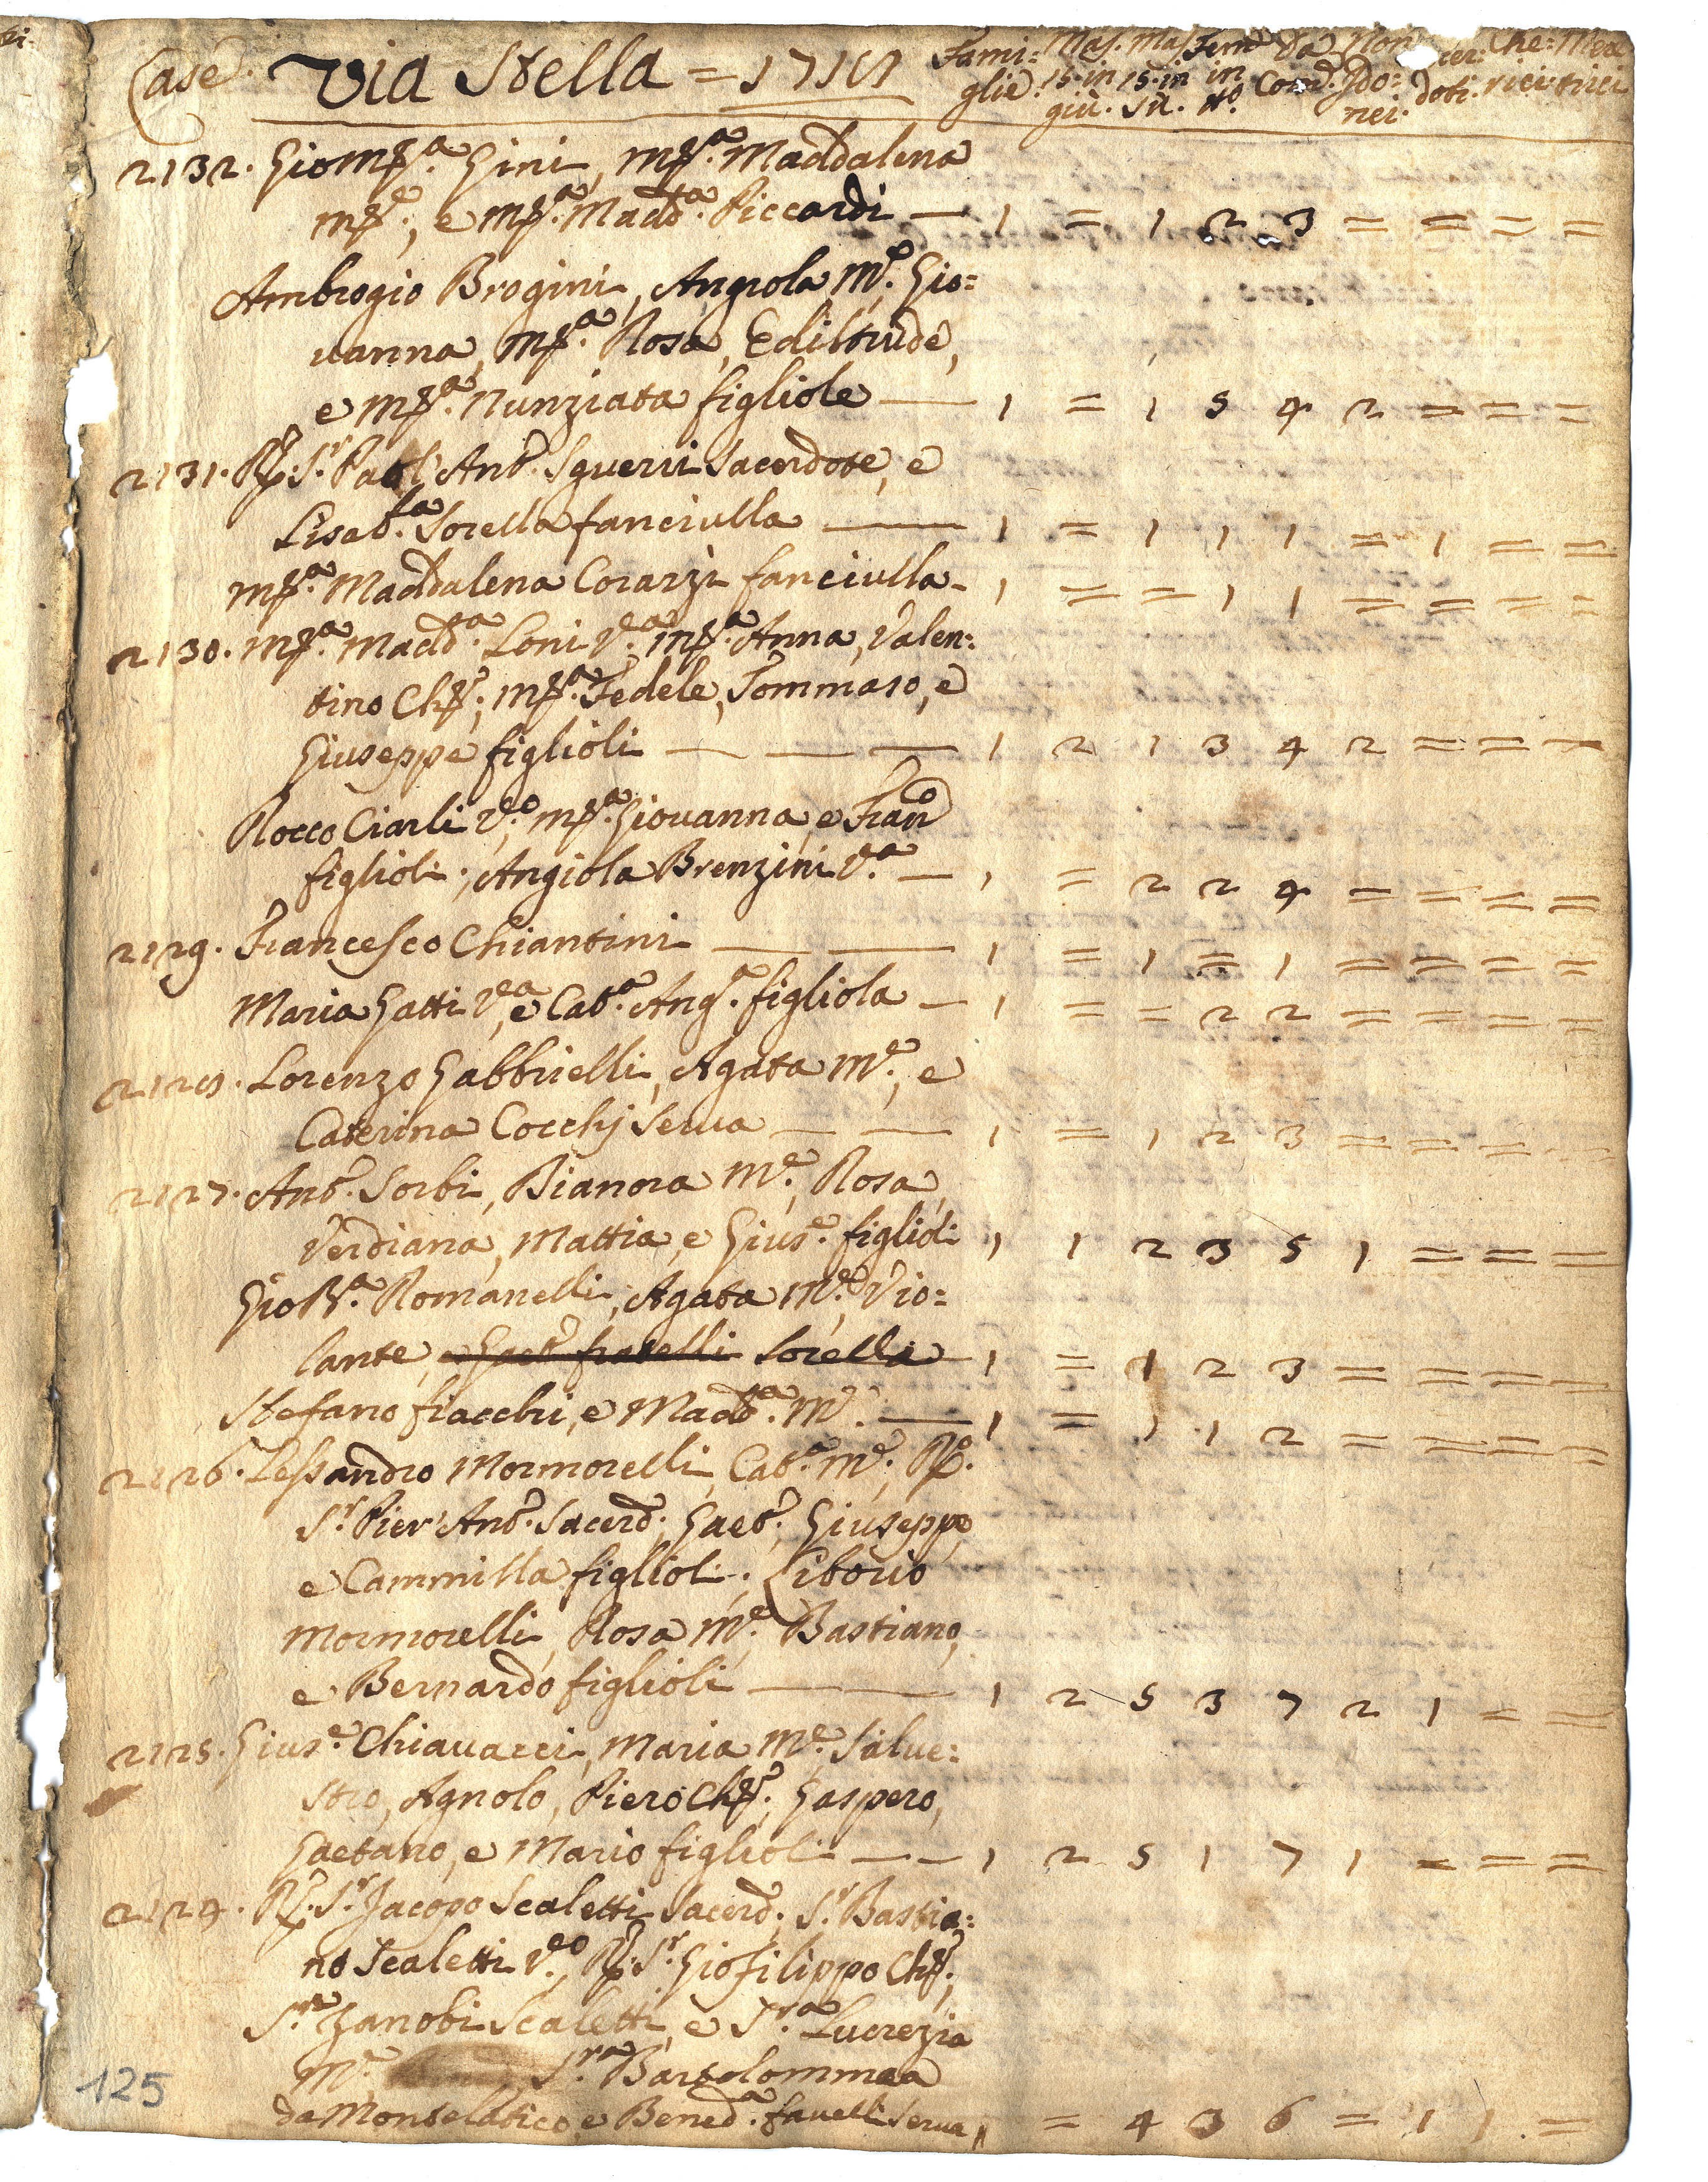 Case. Via Stella = 1718 Fami= Mas. Mas. Fem. Da Non cer: Che: Mea
glie. 15. in 15. in in Com. Ido= doti. rici. trici
giù. sù. tt.º nei.
2132. Gio Mª. Gini, Mª. Maddalena
Mª., e Mª. Maddª. Piccardi — 1 = 1 2 3 = = = =
Ambrogio Brogini, Angiola Mᵉ. Gio=
vanna, Mª. Rosa, Ediltrude,
e Mª. Nunziata figliole — 1 = 1 5 4 2 = = =
2131. R. Sʳ. Paol' Antº. Sguerri Sacerdote, e
Lisabtª. Sorella fanciulla — 1 = 1 1 1 = 1 = =
Mª. Maddalena Corazzi fanciulla - 1 = = 1 1 = = = =
2130. Mª. Maddª. Loni Vª. Mª. Anna, Valen=
tino Ch., Mª. Fedele, Tommaso, e
Giuseppe figlioli — — — 1 2 1 3 4 2 = = =
Rocco Ciarli Vº. Mª. Giovanna, e Franº
figlioli; Angiola Brenzini Vª. — 1 = 2 2 4 = = = =
2129. Francesco Chiantini — — 1 = 1 = 1 = = = =
Maria Gatti Vª, e Catª. Angª. figliola — 1 = = 2 2 = = = =
2128. Lorenzo Gabbrielli, Agata Mᵉ., e
Caterina Cocchj Serva — — 1 = 1 2 3 = = = =
2127. Antº. Sorbi, Bianora Mᵉ. Rosa,
Verdiana, Mattia, e Giusᵉ. figlioli 1 1 2 3 5 1 = = =
Gio Bª. Romanelli, Agata Mᵉ. Vio=
lante, e Gaetº fratelli Sorella 1 = 1 2 3 = = = =
Stefano fiacchi, e Maddª. Mᵉ. — 1 = 1 1 2 = = = =
2126. Lessandro Mormorelli, Catª. Mᵉ. R.
Sʳ. Pier' Antº. Sacerdº. Gaetº. Giuseppe
e Cammilla figlioli. Liborio
Mormorelli, Rosa Mᵉ. Bastiano,
e Bernardo figlioli — — 1 2 5 3 7 2 1 = =
2125. Giusᵉ. Chiavacci, Maria Mᵉ. Salve=
stro, Agnolo, Piero Ch. Gaspero,
Gaetano, e Mario figlioli — — 1 2 5 1 7 1 = = =
2124. R. Sʳ. Jacopo Scaletti Sacerdº. Sʳ. Bastia=
no Scaletti Vº. R. Sʳ. Gio filippo Ch.
Sʳᵉ. Zanobi Scaletti, e Sʳª. Lucrezia
Mᵉ. Sʳª. Bartolommea
da Monteldtico, e Benedª. favelli Serva 1 = 4 3 6 = 1 1 =
125